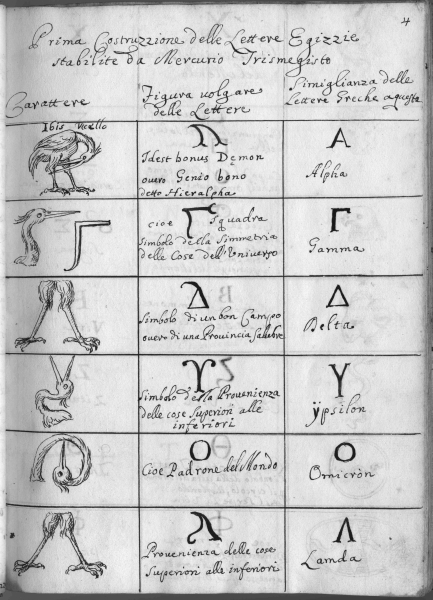 4
Prima Costruzzione delle Lettere Egizzie
stabilite da Mercurio Trismegisto
Carattere
Figura volgare
delle Lettere
Simiglianza delle
Lettere Greche a questa
Ibis Vcello
Idest bonus Demon
overo Genio bono
detto Hieralpha
Α
Alpha
cioe Squadra
Simbolo della Simmetria
delle Cose dell'Universo
Γ
Gamma
Simbolo di un bon Campo
overo di una Provincia Salubre
Δ
Delta
ϒ
Simbolo della Provenienza
delle cose Superiori alle
inferiori
Υ
ÿpsilon
Ο
Cioe Padrone del Mondo
Ο
Omicròn
Provenienza delle cose
Superiori alle inferiori
Λ
Lamda